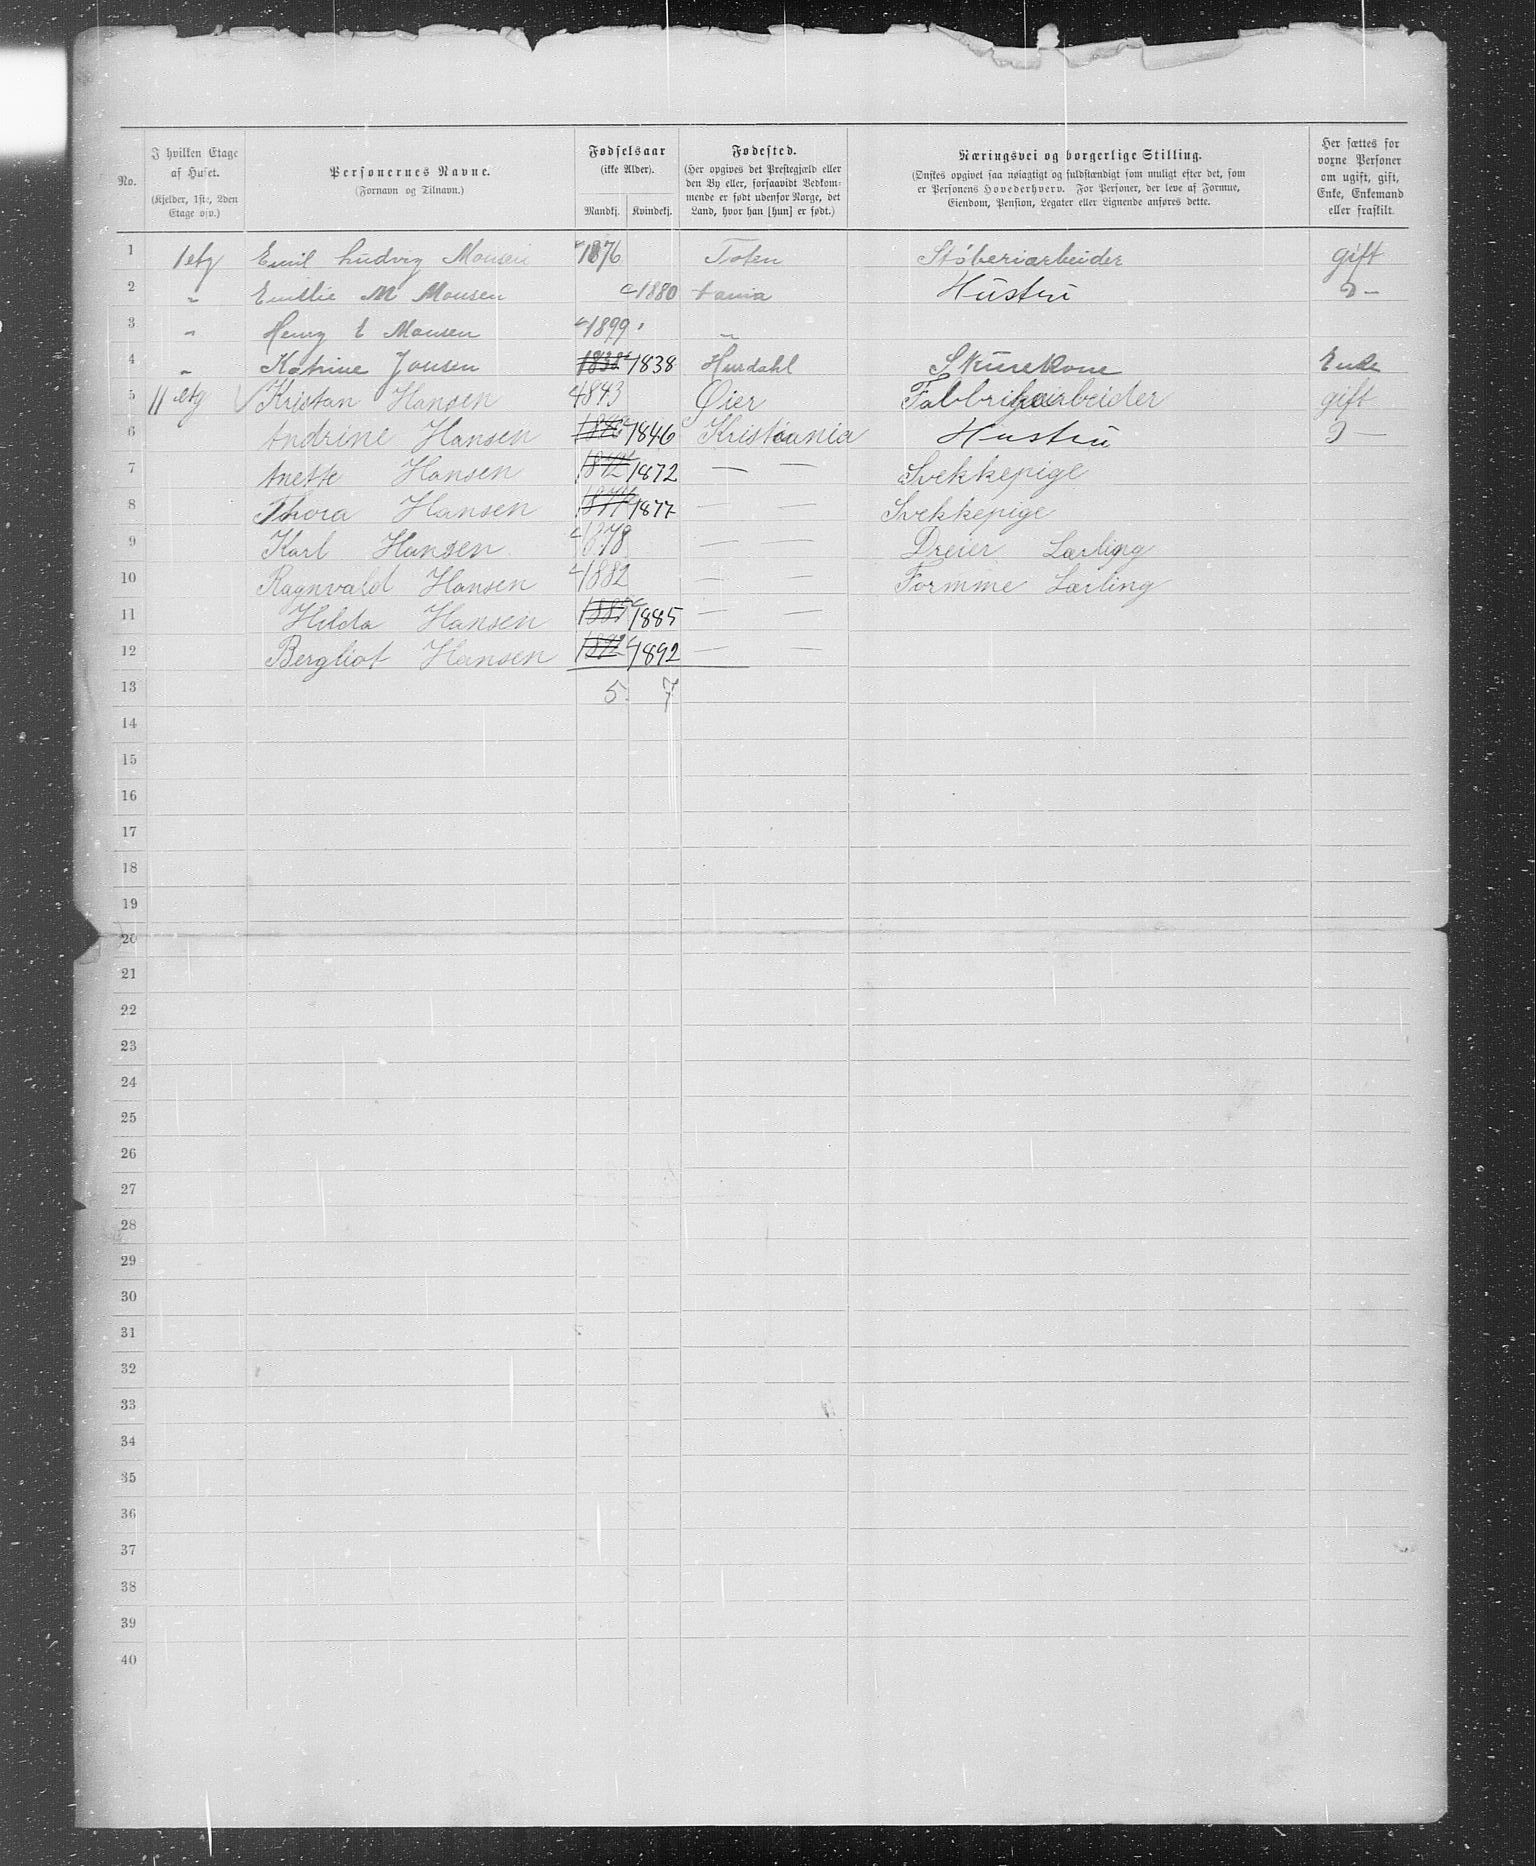 No.
I hvilken Etage af Huset.
(Kjelder, 1ste, 2den Etage osv.)
Personernes Navne.
(Fornavn og Tilnavn.)
Fødselsaar
(ikke Alder).
Mandkj. Kvindekj.
Fødested.
(Her opgives det Prestegjæld eller
den By eller, forsaavidt Vedkom-
mende er født udenfor Norge, det
Land, hvor han [hun] er født.)
Næringsvei og borgerlige Stilling.
(Ønskes opgivet saa nøiagtigt og fuldstændigt som muligt efter det, som
er Personens Hovederhverv. For Personer, der leve af Formue,
Eiendom, Pension, Legater eller Lignende anføres dette.
Her sættes for
voxne Personer
om ugift, gift,
Enke, Enkemand
eller fraskilt.
1 1 etg Emil Ludvig Monsen 1876 Toten Støberiarbeider gift
2 " Emilie M Monsen 1880 tania Hustru D—
3 " Henry E Monsen 1899 "
4 " Katrine Jonsen 1838 1838 Hurdahl Skurekone Enke
5 11 etg Kristan Hansen 1843 Øier Fabbrikarbeider gift
6 Andrine Hansen 1846 1846 Kristiania Hustru D—
7 Anette Hansen 1872 1872 — — Svekkepige
8 Thora Hansen 1877 1877 — — Svekkepige
9 Karl Hansen 1878 — — Dreier Lærling
10 Ragnvald Hansen 1882 — — Formme Lærling
11 Hilda Hansen 1885 1885 — —
12 Bergliot Hansen 1892 1892 — —
13 5 7
14
15
16
17
18
19
20
21
22
23
24
25
26
27
28
29
30
31
32
33
34
35
36
37
38
39
40